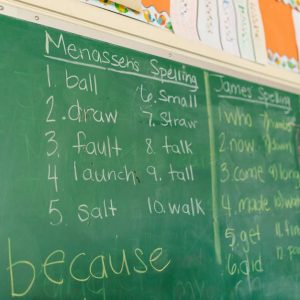 Menassehs Spelling
1. ball 6. Small
2. draw 7. Straw
3. fault 8 talk
4 launch 9. tall
5. salt 10. walk
because
James Spelling
1 who
2 now
3 come
4 made
5 get
6. did